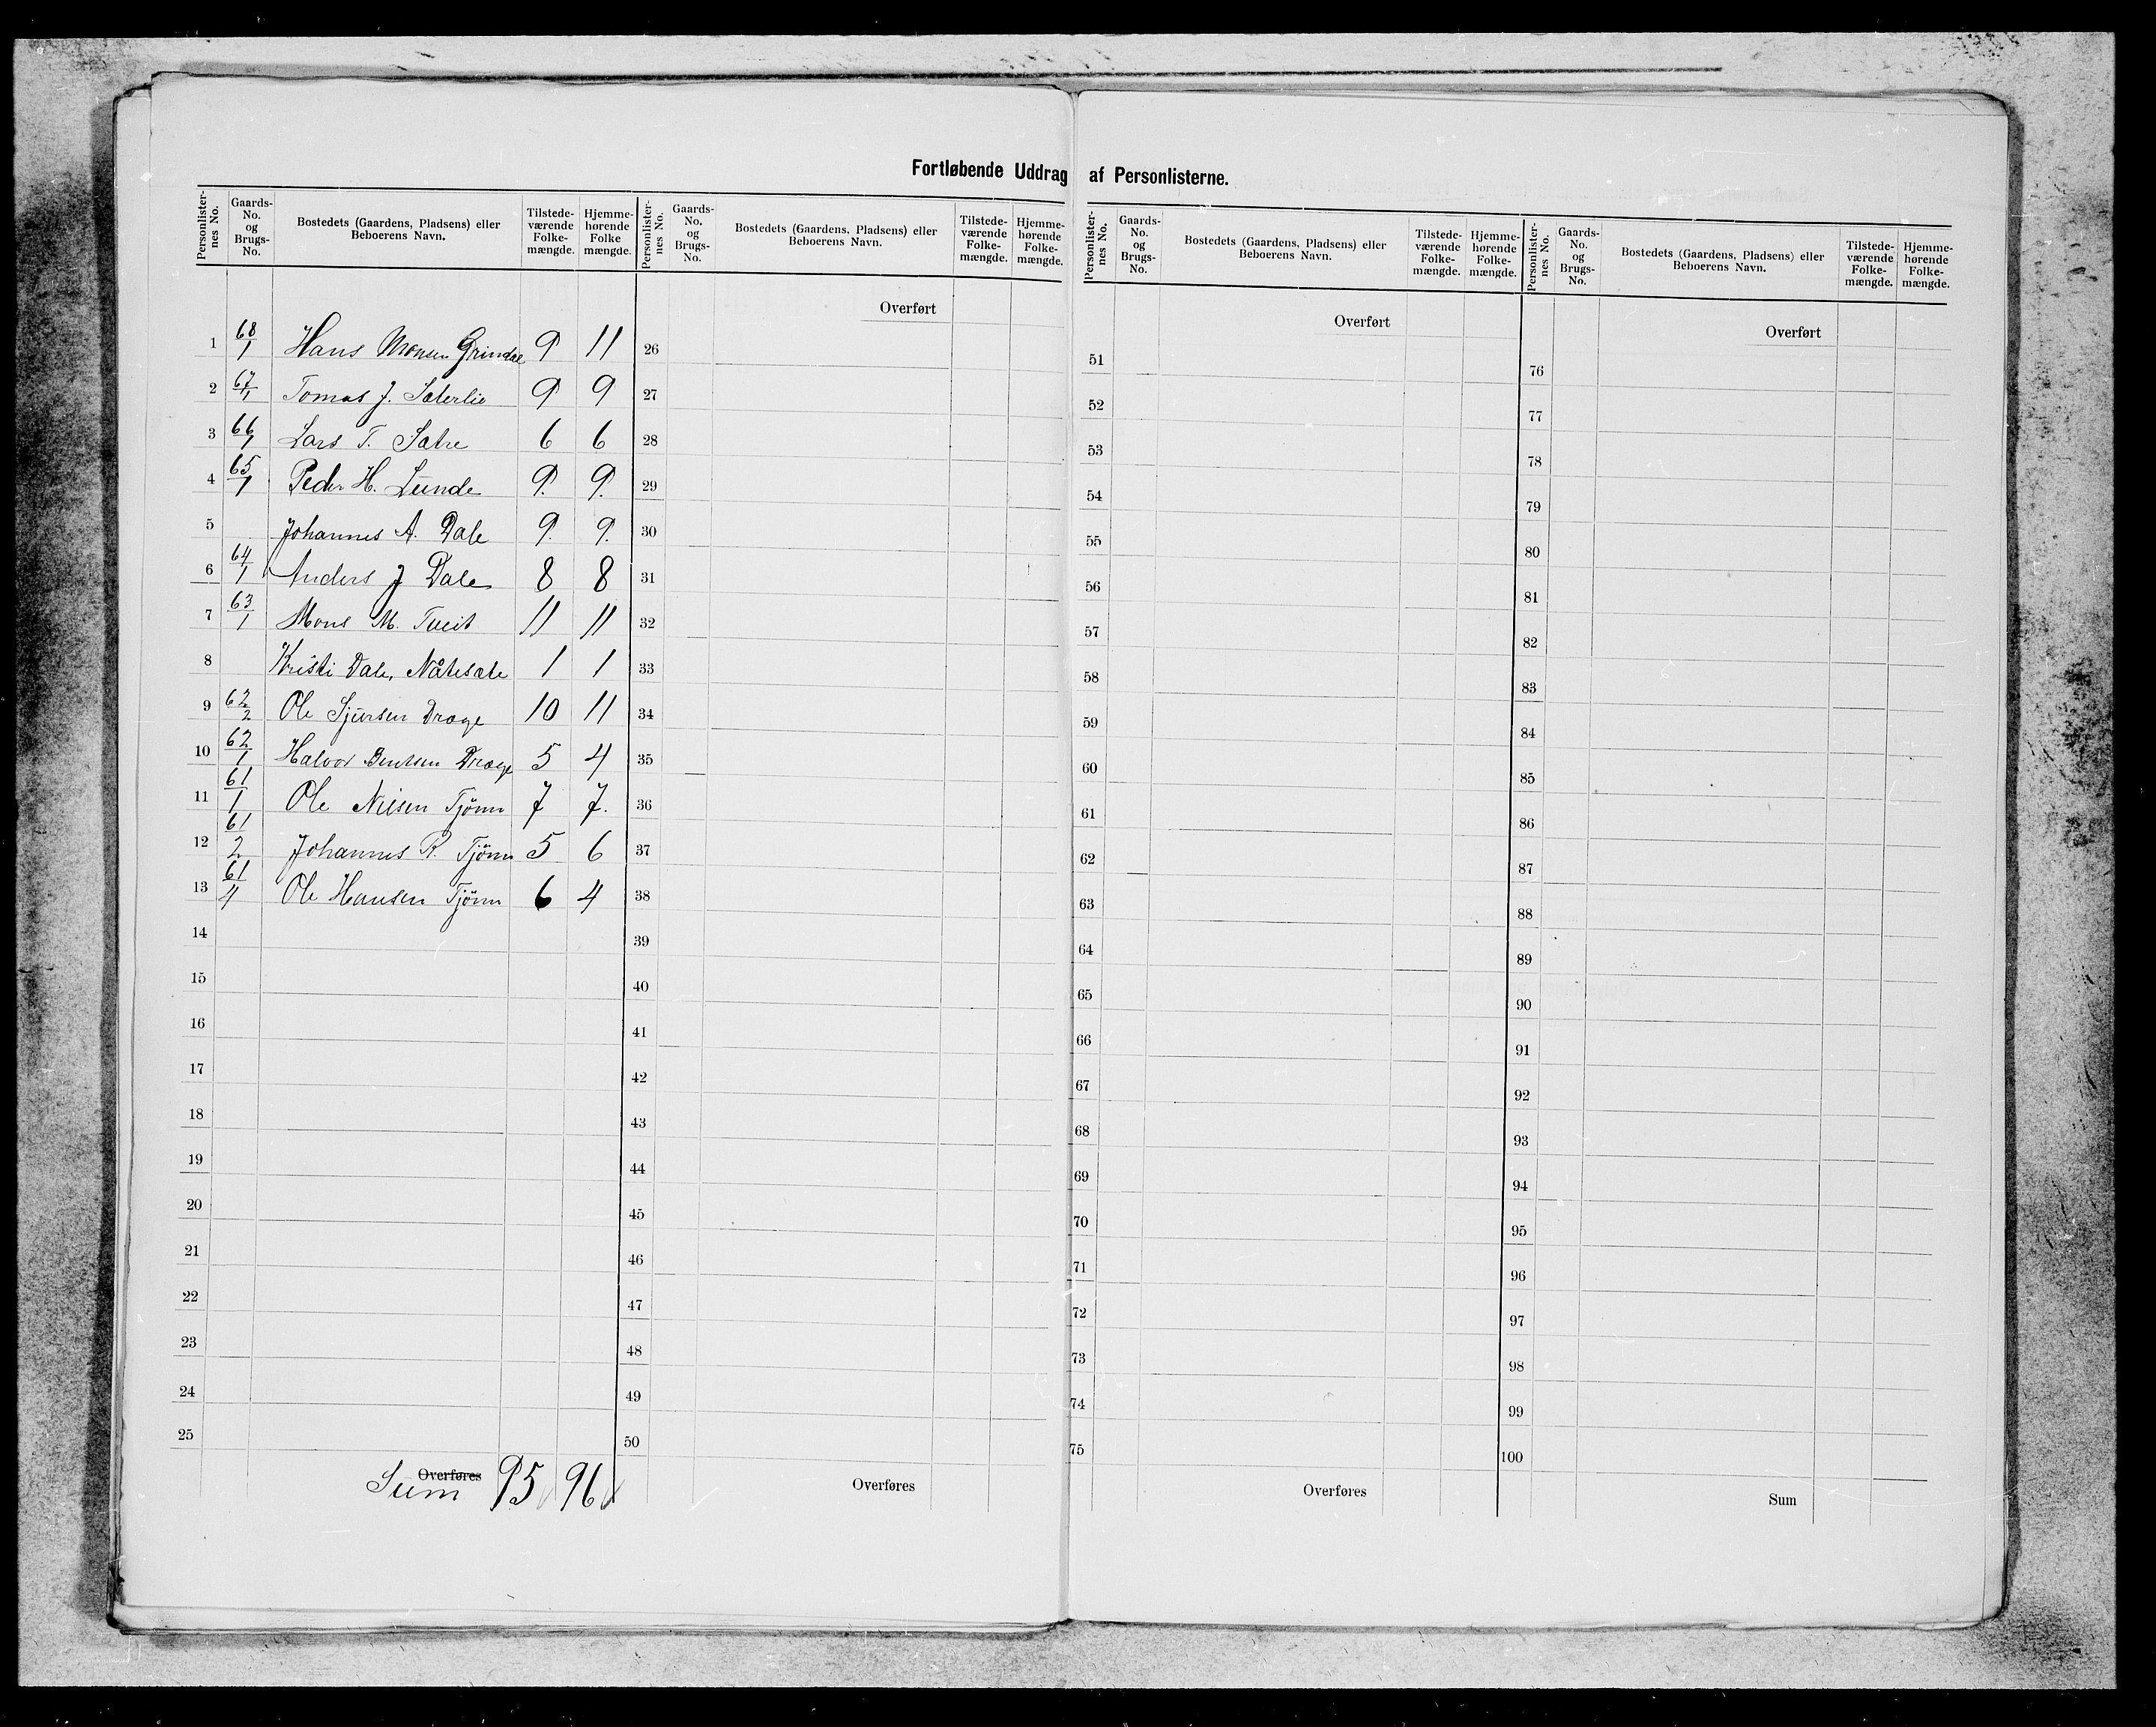 Fortløbende Uddrag af Personlisterne.
Personlister-nes No. Gaards-No. og Brugs-No. Bostedets (Gaardens, Pladsens) eller Beboerens Navn. Tilstede-værende Folke-mængde. Hjemme-hørende Folke mængde.
Personlister-nes No. Gaards-No. og Brugs-No. Bostedets (Gaardens, Pladsens) eller Beboerens Navn. Tilstede-værende Folke-mængde. Hjemme-hørende Folke-mængde.
Personlister-nes No. Gaards-No. og Brugs-No. Bostedets (Gaardens, Pladsens) eller Beboerens Navn. Tilstede-værende Folke-mængde. Hjemme-hørende Folke-mængde.
Personlister-nes No. Gaards-No. og Brugs-No. Bostedets (Gaardens, Pladsens) eller Beboerens Navn. Tilstede-værende Folke-mængde. Hjemme-hørende Folke-mængde.
1 68/1 Hans Monsen Grindae 9 11
2 67/1 Tomas J. Sæterlie 9 9
3 66/1 Lars T. Sætre 6 6
4 65/1 Peder H. Lunde 9. 9.
5 Johannes A. Dale 9. 9.
6 64/1 Anders J Dale 8 8
7 63/1 Mons M. Tveit 11 11
8 Kristi Dale, Nåtesæte 1 1
9 62/2 Ole Sjursen Drage 10 11
10 62/1 Halvor Bentsen Drage 5 4
11 61/1 Ole Nilsen Tjönn 7 7.
12 61/2 Johannes R. Tjönn 5 6
13 61/4 Ole Hansen Tjönn 6 4
14
15
16
17
18
19
20
21
22
23
24
25
Overføres
Sum 95 96
Overført
26
27
28
29
30
31
32
33
34
35
36
37
38
39
40
41
42
43
44
45
46
47
48
49
50
Overføres
Overført
51
52
53
54
55
56
57
58
59
60
61
62
63
64
65
66
67
68
69
70
71
72
73
74
75
Overføres
Overført
76
77
78
79
80
81
82
83
84
85
86
87
88
89
90
91
92
93
94
95
96
97
98
99
100
Sum